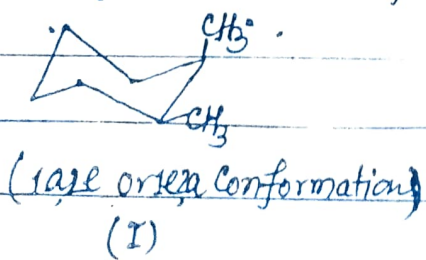 CH3
CH3
(1a,2e or 1e,2a Conformation)
(I)